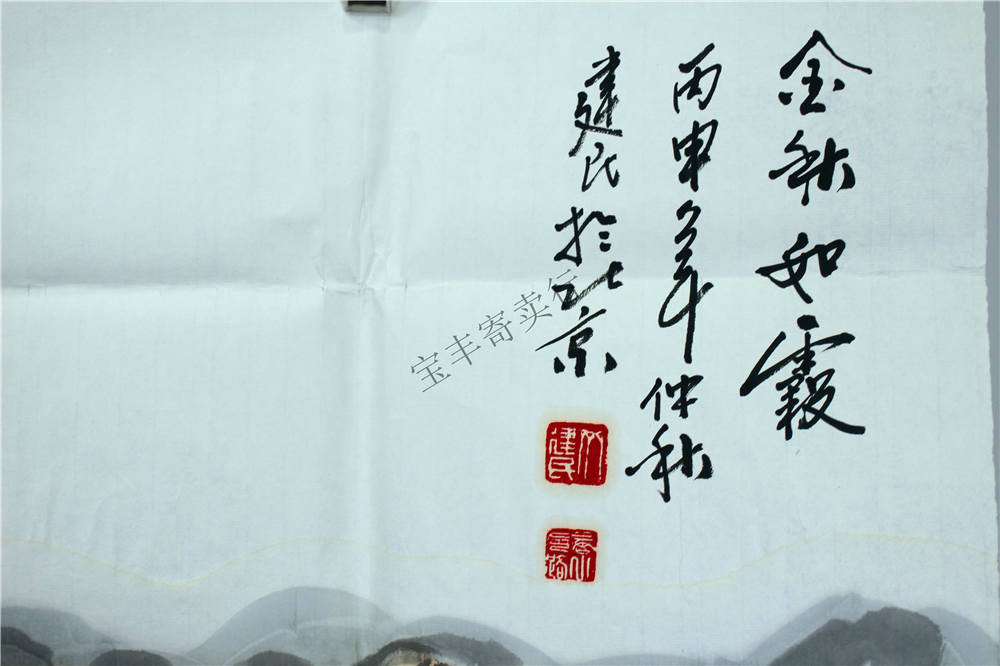 金秋如霞
丙申年仲秋
建民於北京
建民
宝丰寄卖行